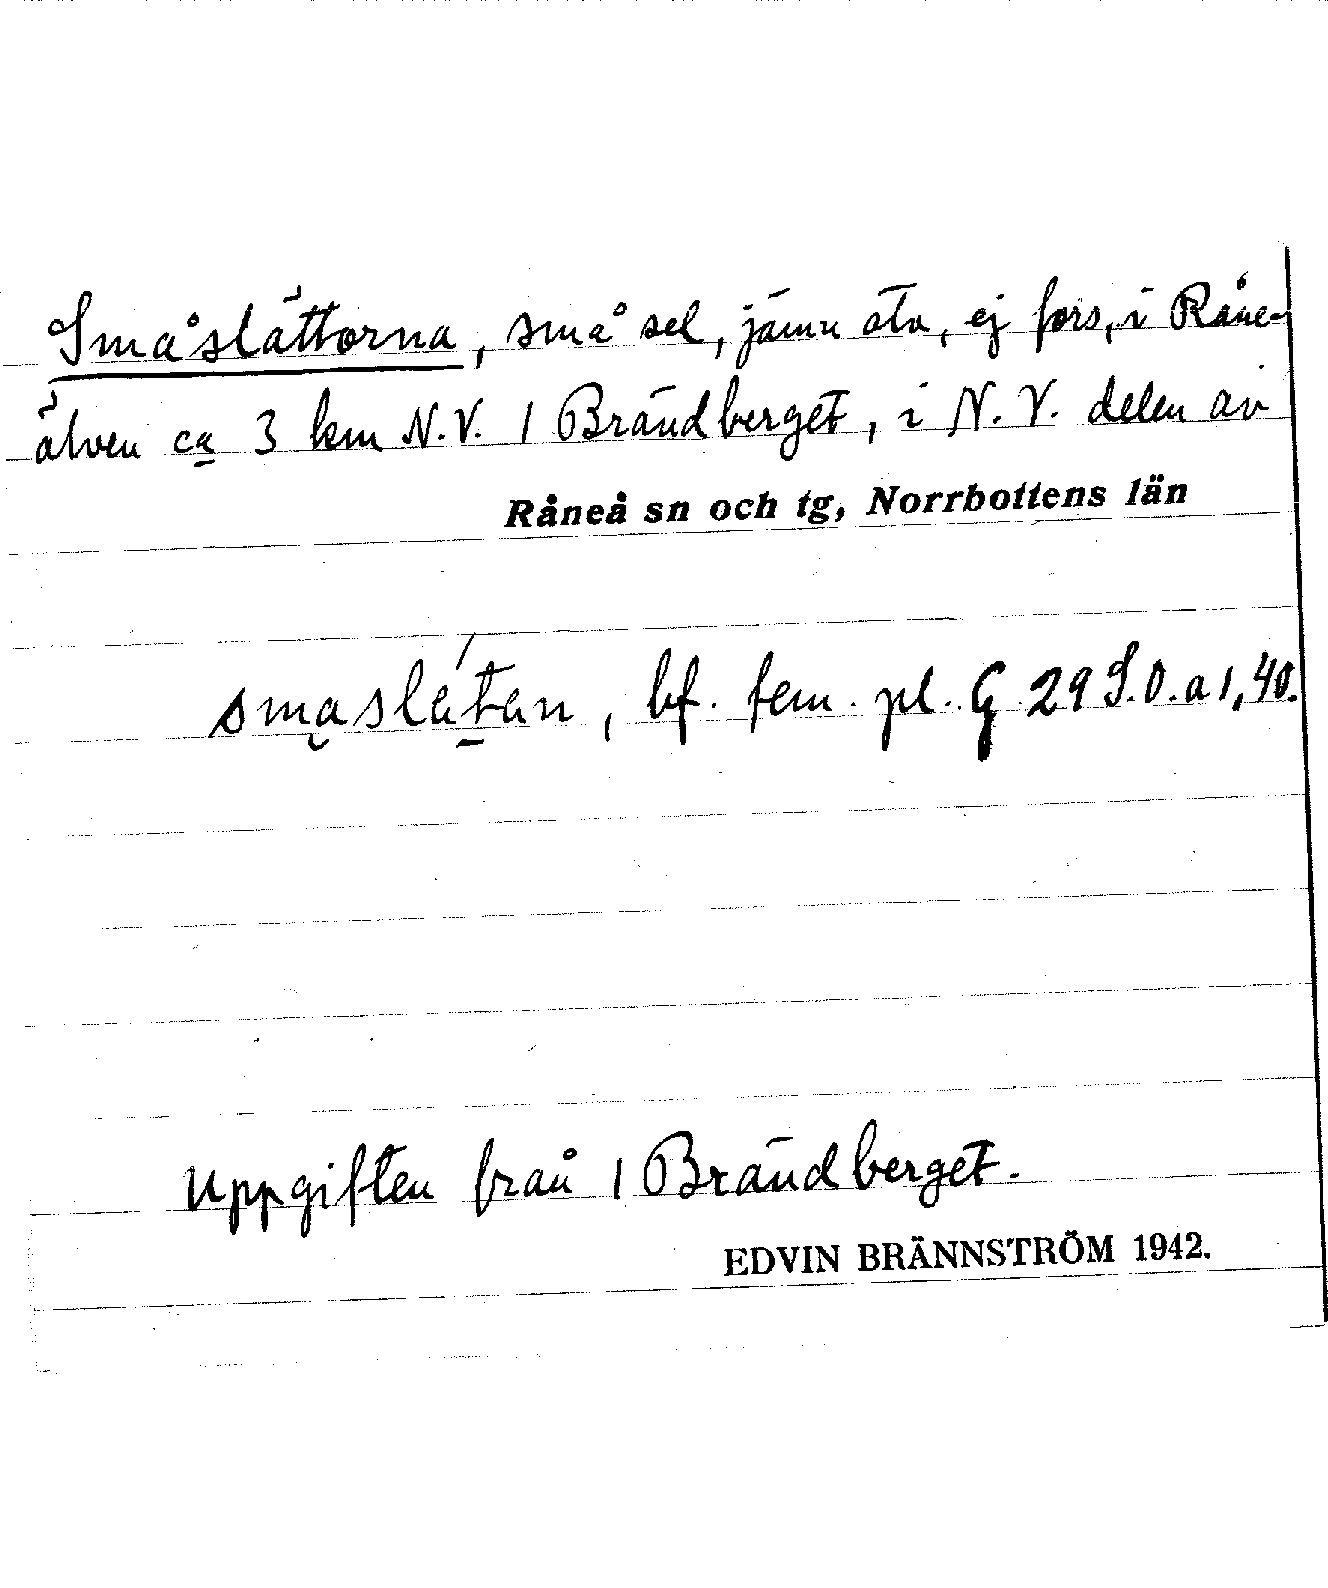 Småslättorna, små sel, jämn älv, ej fors, i Råne-
älven ca 3 km N.V. 1 Brändberget, i N.V. delen av
Råneå sn och tg, Norrbottens län
bf. fem. pl. G 29 S.O. a 1, 40.
Uppgiften från 1 Brändberget.
EDVIN BRÄNNSTRÖM 1942.